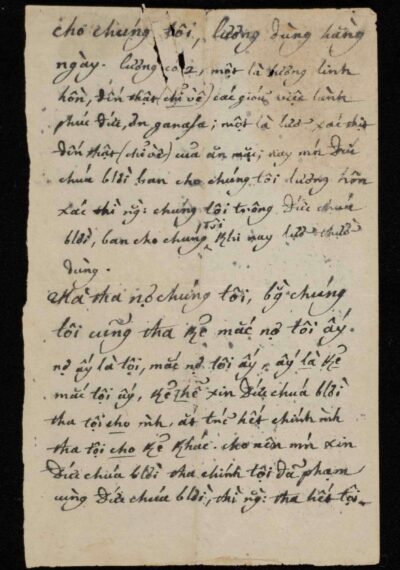 cho chúng tôi, lương dùng hằng
ngày. lương có 2, một là lương linh
hồn, đến thật (chỉ về) các giáo việc lành
phúc đức, ơn garasa; một là lươ xác thịt
đến thật (chỉ về) của ăn mặc; nay mn Đức
chúa blời ban cho chúng tôi lương hồn
xác thì ng: chúng tôi trông Đức chúa
blời, ban cho chúng tôi khi nay lươ thườ
dùng.
Mà tha nợ chúng tôi, bg chúng
tôi cũng tha kẻ mắc nợ tôi ấy.
nợ ấy là tội, mắc nợ tôi ấy, ấy là kẻ
mắc tội ấy, kẻ xin Đức chúa blời
tha tội cho mình, ắt trc hết chính mình
tha tội cho kẻ khác. cho nên mn xin
Đức chúa blời tha chính tội đã phạm
cùng Đức chúa blời, thì ng: tha hết tội